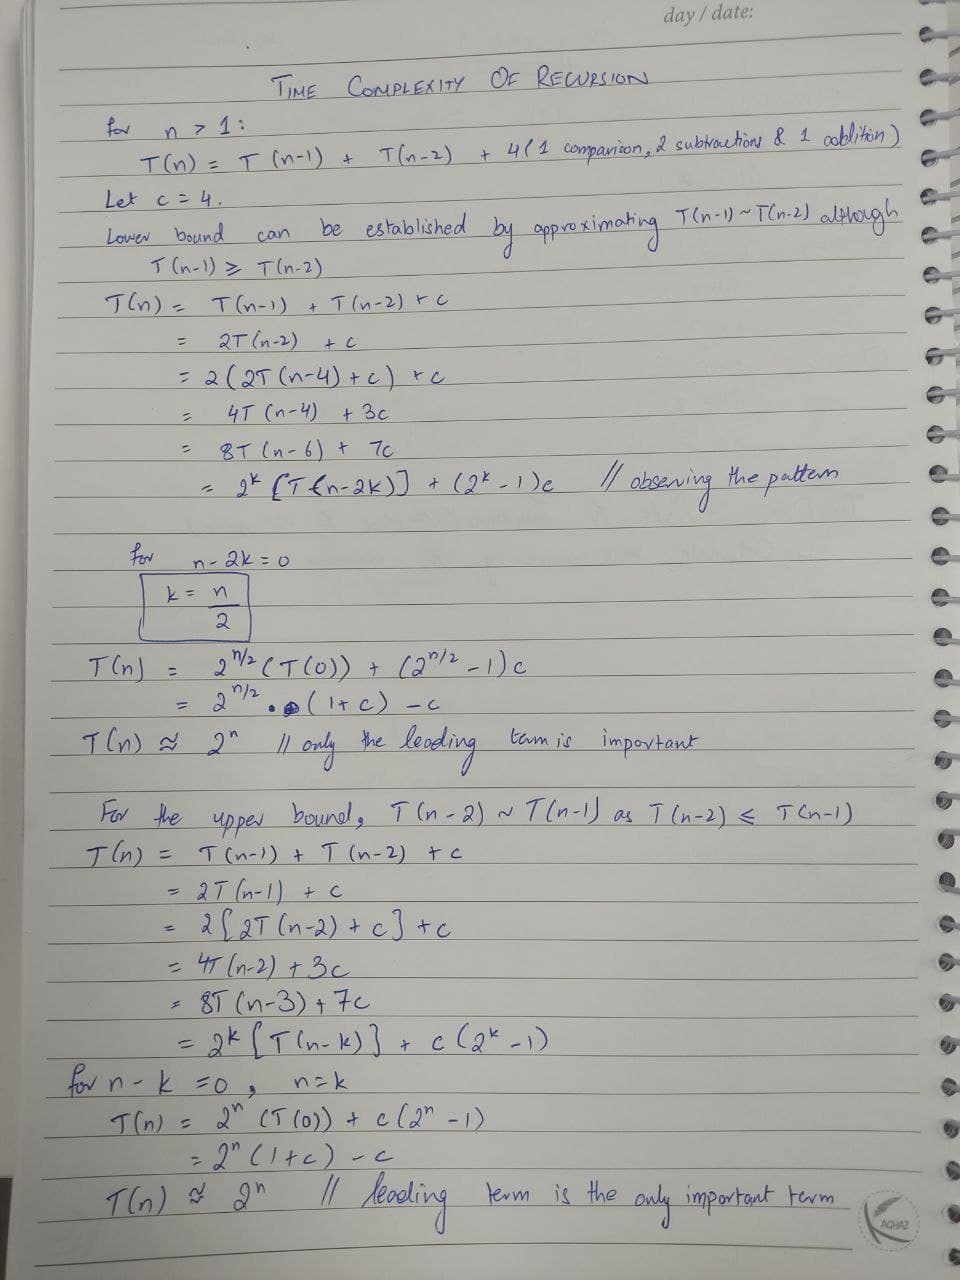 day / date:
TIME COMPLEXITY OF RECURSION
for n > 1:
T(n) = T (n-1) + T(n-2) + 4 (1 comparison, 2 subtractions & 1 addition)
Let c = 4.
Lower bound can be established by approximating T(n-1) ~ T(n-2) although
T(n-1) ⩾ T(n-2)
T(n) = T(n-1) + T(n-2) + c
= 2T(n-2) + c
= 2(2T(n-4) + c) + c
= 4T (n-4) + 3c
= 8T (n-6) + 7c
= 2^k [T(n-2k)] + (2^k - 1)c // observing the pattern
for n - 2k = 0
k = n/2
T(n) = 2^{n/2} (T(0)) + (2^{n/2} - 1) c
= 2^{n/2} . (1+c) - c
T(n) ≈ 2^n // only the leading term is important
For the upper bound, T(n-2) ~ T(n-1) as T(n-2) ⩽ T(n-1)
T(n) = T(n-1) + T(n-2) + c
= 2T(n-1) + c
= 2[2T(n-2) + c] + c
= 4T(n-2) + 3c
= 8T(n-3) + 7c
= 2^k [T(n-k)] + c(2^k - 1)
for n - k = 0, n = k
T(n) = 2^n (T(0)) + c(2^n - 1)
= 2^n (1+c) - c
T(n) ≈ 2^n // leading term is the only important term
KAGHAZ